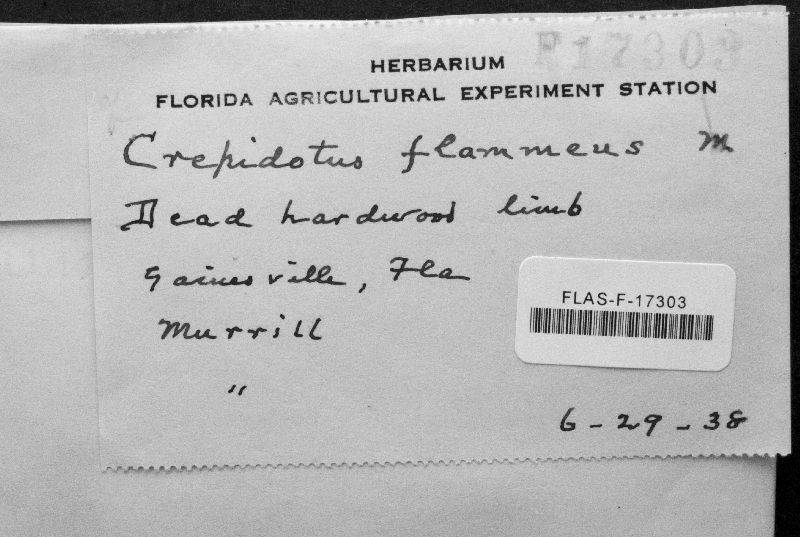 F17303
HERBARIUM
FLORIDA AGRICULTURAL EXPERIMENT STATION
Crepidotus flammeus M
Dead hardwood limb
Gainesville, Fla
FLAS-F-17303
Murrill
"
6-29-38